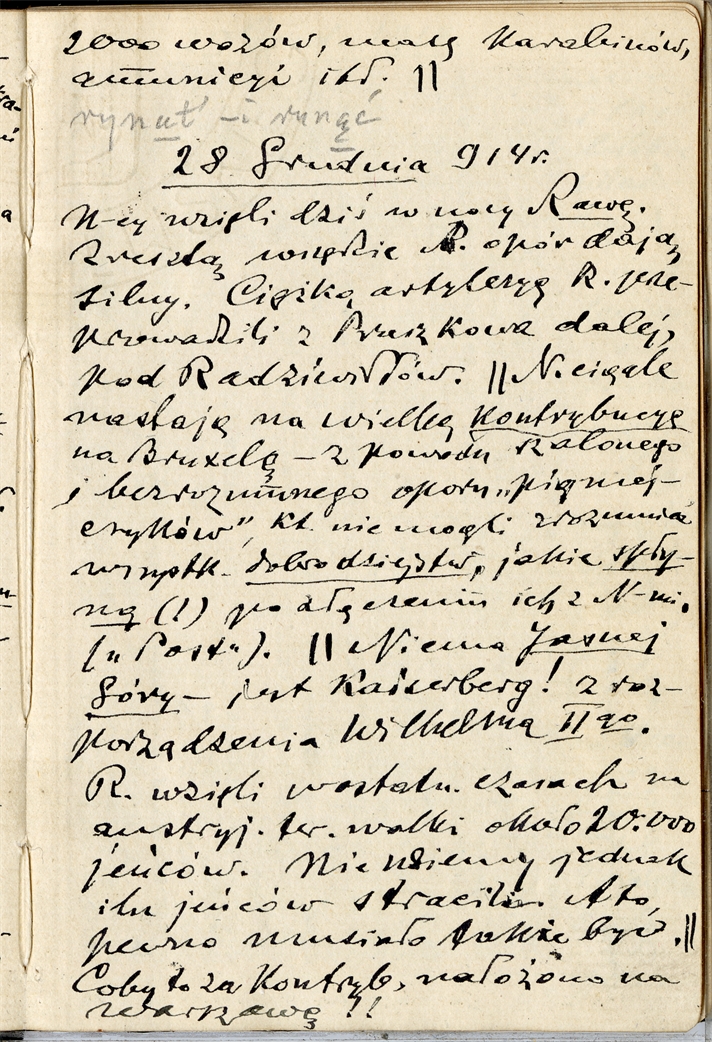 2000 wozów, masę karabinów,
amunicyi itd. ||
rynuł – i runąć
28 Grudnia 914 r.
N-cy wzięli dziś w nocy Rawę.
Zresztą wszędzie R. opór dają
silny. Ciężką artyleryę R. prze-
prowadzili z Pruszkowa dalej,
pod Radziwiłłów. || N. ciągle
nastają na wielką kontrybucyę
na Bruxelę – z powodu szalonego
i bezrozumnego oporu „pigmej-
czyków”, kt. nie mogli zrozumieć
wszystk. dobrodziejstw, jakie spły-
ną (!) po złączeniu ich z N-mi.
(„Post„). || Niema Jasnej
Góry – jest Kaiserberg! Z roz-
porządzenia Wilhelma II go.
R. wzięli w ostatn. czasach na
austryj. ter. walki około 20.000
jeńców. Nie wiemy jednak
ilu jeńców stracili. A to,
pewno musiało także być. ||
Coby to za kontryb. nałożono na
Warszawę !!